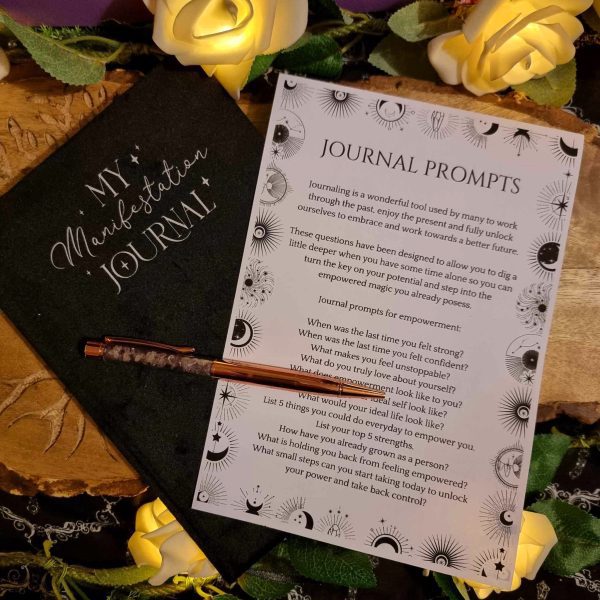 MY
Manifestation
JOURNAL
JOURNAL PROMPTS
Journaling is a wonderful tool used by many to work
through the past, enjoy the present and fully unlock
ourselves to embrace and work towards a better future.
These questions have been designed to allow you to dig a
little deeper when you have some time alone so you can
turn the key on your potential and step into the
empowered magic you already posess.
Journal prompts for empowerment:
When was the last time you felt strong?
When was the last time you felt confident?
What makes you feel unstoppable?
What do you truly love about yourself?
What does empowerment look like to you?
ideal self look like?
What would your ideal life look like?
List 5 things you could do everyday to empower you.
List your top 5 strengths.
How have you already grown as a person?
What is holding you back from feeling empowered?
What small steps can you start taking today to unlock
your power and take back control?